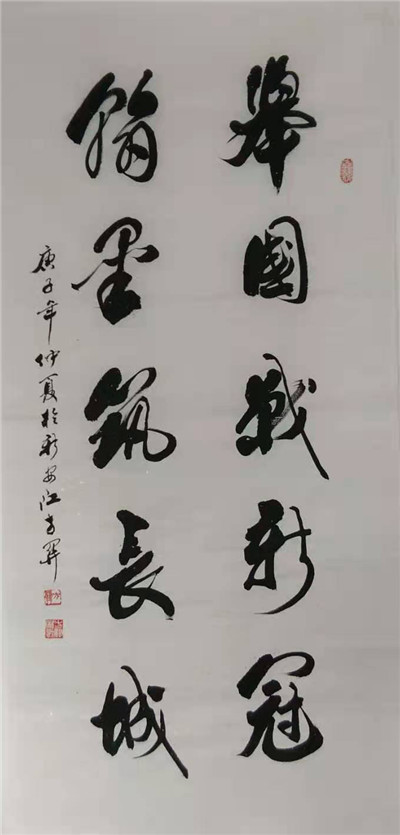 舉國戰新冠
翰墨筑長城
庚子年仲夏於新安江方昇